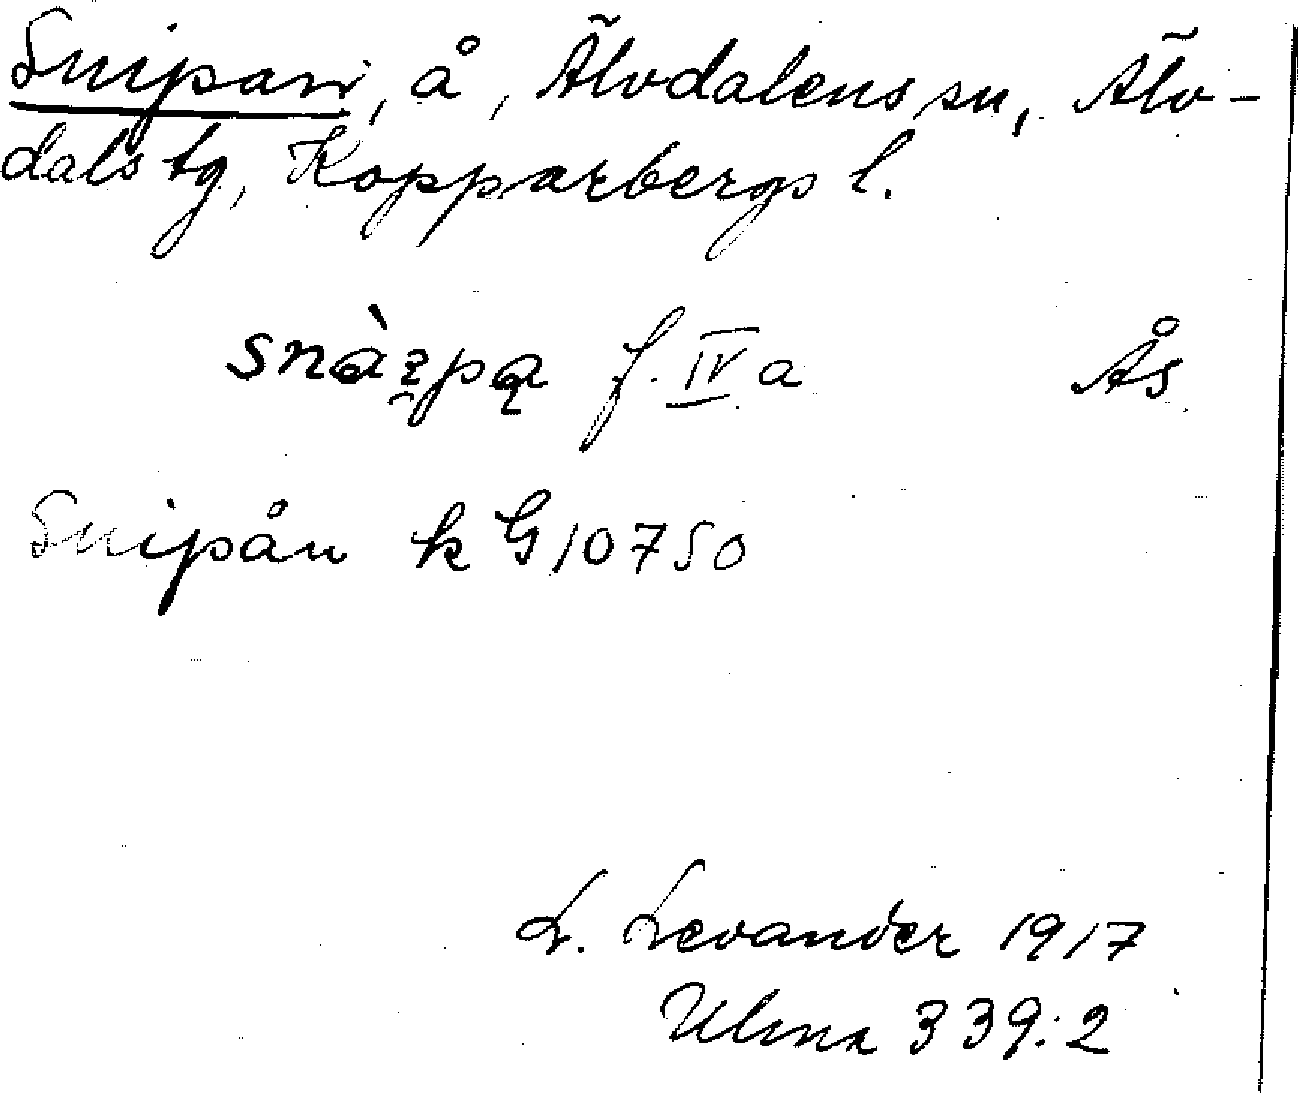 Snipan, å, Älvdalens sn, Älv-
dals tg, Kopparbergs l.
f. IV a Ås
Snipån k G 10750
L. Levander 1917
Ulma 339:2